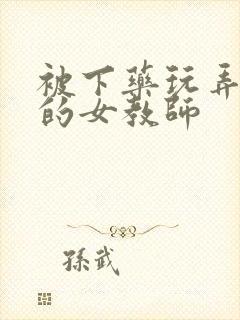 被下藥玩弄
的女教師
孫武